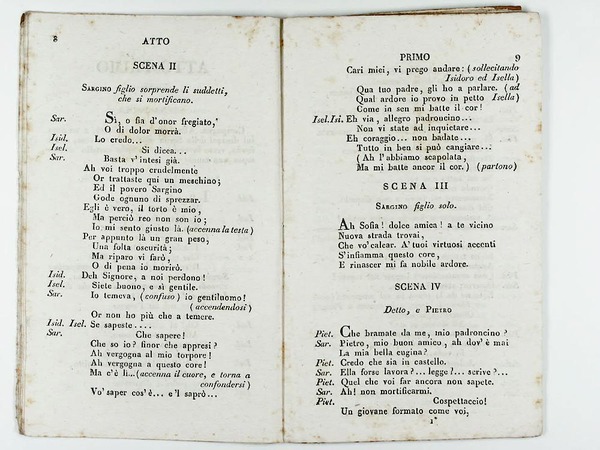 8
ATTO
SCENA II
SARGINO figlio sorprende li suddetti,
che si mortificano.
Sar. Sì, o sia d'onor fregiato,
O di dolor morrà.
Isid. Lo credo...
Isel. Si dica...
Sar. Basta v'intesi già.
Ah voi troppo crudelmente
Or trattaste qui un meschino;
Ed il povero Sargino
Gode ognuno di sprezzar.
Egli è vero, il torto è mio,
Ma perciò reo non son io;
Io mi sento giusto là. (accenna la testa)
Per appunto là un gran peso,
Una folta oscurità;
Ma riparo vi farò,
O di pena io morirò.
Isid. Deh Signore, a noi perdono!
Isel. Siete buono, e sì gentile.
Sar. Io temeva, (confuso) io gentiluomo!
(accendendosi)
Or non ho più che a temere.
Isid. Isel. Se sapeste....
Sar. Che sapere!
Che so io? finor che appresi?
Ah vergogna al mio torpore!
Ah vergogna a questo core!
Ma c'è lì...(accenna il cuore, e torna a
confondersi)
Vo' saper cos'è... e'l saprò...
PRIMO
9
Cari miei, vi prego andare: (sollecitando
Isidoro ed Isella)
Qua tuo padre, gli ho a parlare. (ad
Qual ardore io provo in petto Isella)
Come in sen mi batte il cor!
Isel.Isi. Eh via, allegro padroncino...
Non vi state ad inquietare...
Eh coraggio... non badate...
Tutto in ben si può cangiare...
(Ah l'abbiamo scapolata,
Ma mi batte ancor il cor.) (partono)
SCENA III
SARGINO figlio solo.
Ah Sofia! dolce amica! a te vicino
Nuova strada trovai,
Che vo' calcar. A' tuoi virtuosi accenti
S'infiamma questo core,
E rinascer mi fa nobile ardore.
SCENA IV
Detto, e PIETRO
Piet. Che bramate da me, mio padroncino?
Sar. Pietro, mio buon amico, ah dov'è mai
La mia bella cugina?
Piet. Credo che sia in castello.
Sar. Ella forse lavora?... legge?... scrive?...
Piet. Quel che voi far ancora non sapete.
Sar. Ah! non mortificarmi.
Piet. Cospettaccio!
Un giovane formato come voi,
1*